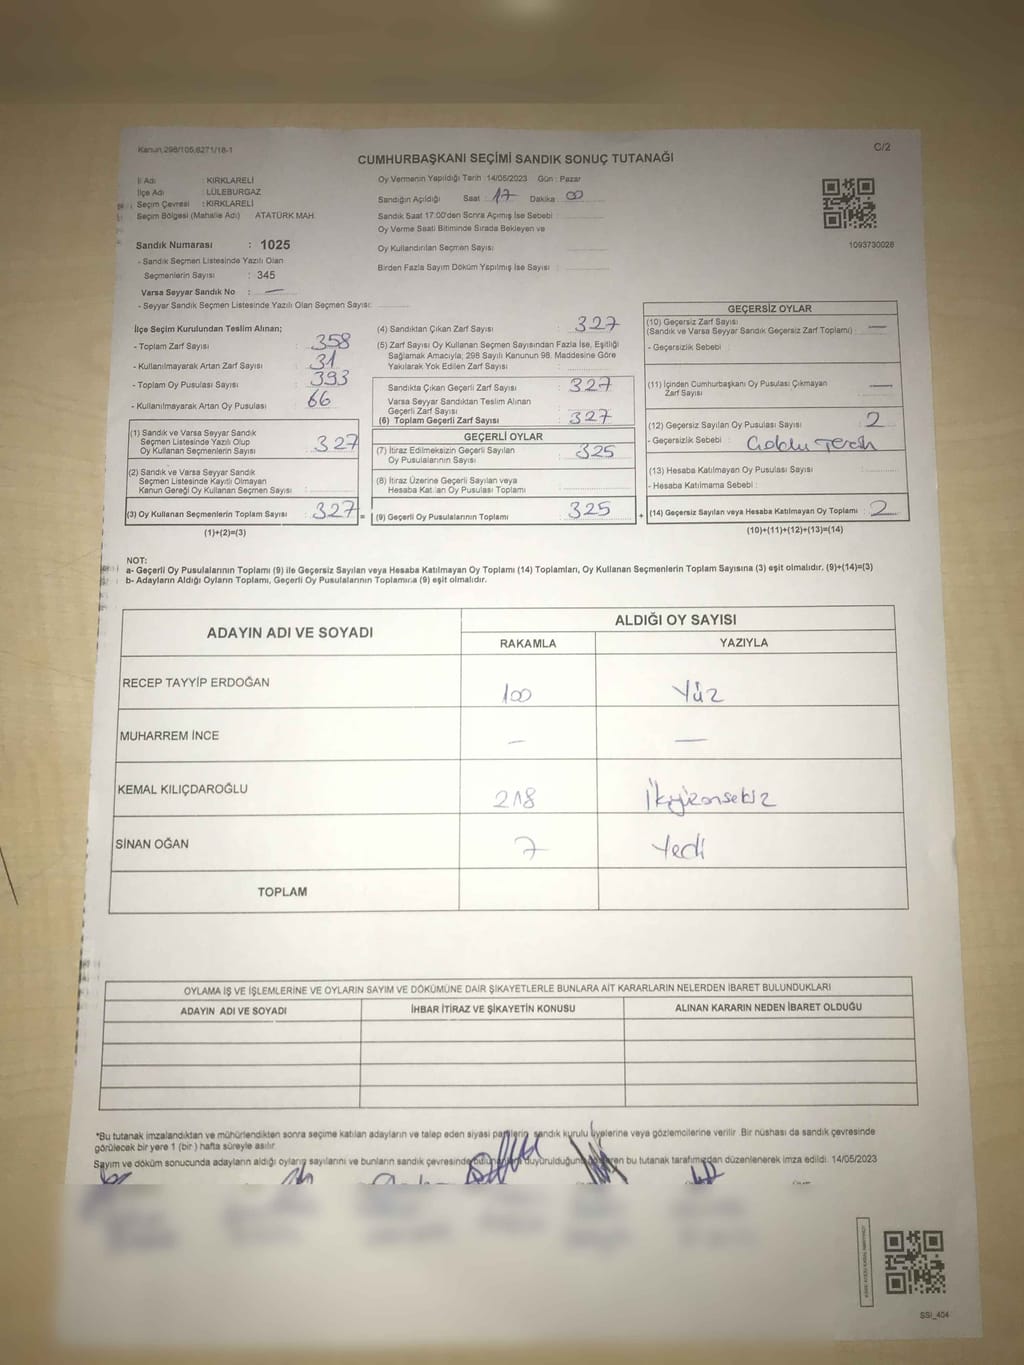 Kanun:298/105;6271/18-1
C/2
CUMHURBAŞKANI SEÇİMİ SANDIK SONUÇ TUTANAĞI
İl Adı : KIRKLARELİ
İlçe Adı : LÜLEBURGAZ
Seçim Çevresi : KIRKLARELİ
Seçim Bölgesi (Mahalle Adı) ATATÜRK MAH.
Sandık Numarası : 1025
- Sandık Seçmen Listesinde Yazılı Olan
Seçmenlerin Sayısı : 345
Varsa Seyyar Sandık No : —
- Seyyar Sandık Seçmen Listesinde Yazılı Olan Seçmen Sayısı:
Oy Vermenin Yapıldığı Tarih :14/05/2023 Gün : Pazar
Sandığın Açıldığı Saat : 17 Dakika : 00
Sandık Saat 17:00'den Sonra Açılmış İse Sebebi :
Oy Verme Saati Bitiminde Sırada Bekleyen ve
Oy Kullandırılan Seçmen Sayısı:
Birden Fazla Sayım Döküm Yapılmış İse Sayısı :
1093730028
İlçe Seçim Kurulundan Teslim Alınan;
- Toplam Zarf Sayısı : 358
- Kullanılmayarak Artan Zarf Sayısı : 31
- Toplam Oy Pusulası Sayısı : 393
- Kullanılmayarak Artan Oy Pusulası : 66
(1) Sandık ve Varsa Seyyar Sandık
Seçmen Listesinde Yazılı Olup
Oy Kullanan Seçmenlerin Sayısı : 327
(2) Sandık ve Varsa Seyyar Sandık
Seçmen Listesinde Kayıtlı Olmayan
Kanun Gereği Oy Kullanan Seçmen Sayısı :
(3) Oy Kullanan Seçmenlerin Toplam Sayısı : 327 =
(1)+(2)=(3)
(4) Sandıktan Çıkan Zarf Sayısı : 327
(5) Zarf Sayısı Oy Kullanan Seçmen Sayısından Fazla İse, Eşitliği
Sağlamak Amacıyla; 298 Sayılı Kanunun 98. Maddesine Göre
Yakılarak Yok Edilen Zarf Sayısı :
Sandıkta Çıkan Geçerli Zarf Sayısı : 327
Varsa Seyyar Sandıktan Teslim Alınan
Geçerli Zarf Sayısı :
(6) Toplam Geçerli Zarf Sayısı : 327
GEÇERLİ OYLAR
(7) İtiraz Edilmeksizin Geçerli Sayılan
Oy Pusulalarının Sayısı : 325
(8) İtiraz Üzerine Geçerli Sayılan veya
Hesaba Katılan Oy Pusulası Toplamı :
(9) Geçerli Oy Pusulalarının Toplamı : 325 +
GEÇERSİZ OYLAR
(10) Geçersiz Zarf Sayısı
(Sandık ve Varsa Seyyar Sandık Geçersiz Zarf Toplamı) : —
- Geçersizlik Sebebi :
(11) İçinden Cumhurbaşkanı Oy Pusulası Çıkmayan
Zarf Sayısı : —
(12) Geçersiz Sayılan Oy Pusulası Sayısı : 2
- Geçersizlik Sebebi :
(13) Hesaba Katılmayan Oy Pusulası Sayısı :
- Hesaba Katılmama Sebebi :
(14) Geçersiz Sayılan veya Hesaba Katılmayan Oy Toplamı : 2
(10)+(11)+(12)+(13)=(14)
NOT:
a- Geçerli Oy Pusulalarının Toplamı (9) ile Geçersiz Sayılan veya Hesaba Katılmayan Oy Toplamı (14) Toplamları, Oy Kullanan Seçmenlerin Toplam Sayısına (3) eşit olmalıdır. (9)+(14)=(3)
b- Adayların Aldığı Oyların Toplamı, Geçerli Oy Pusulalarının Toplamına (9) eşit olmalıdır.
ADAYIN ADI VE SOYADI
ALDIĞI OY SAYISI
RAKAMLA YAZIYLA
RECEP TAYYİP ERDOĞAN 100 Yüz
MUHARREM İNCE — —
KEMAL KILIÇDAROĞLU 218 İkiyüzonsekiz
SİNAN OĞAN 7 Yedi
TOPLAM
OYLAMA İŞ VE İŞLEMLERİNE VE OYLARIN SAYIM VE DÖKÜMÜNE DAİR ŞİKAYETLERLE BUNLARA AİT KARARLARIN NELERDEN İBARET BULUNDUKLARI
ADAYIN ADI VE SOYADI İHBAR İTİRAZ VE ŞİKAYETİN KONUSU ALINAN KARARIN NEDEN İBARET OLDUĞU
*Bu tutanak imzalandıktan ve mühürlendikten sonra seçime katılan adayların ve talep eden siyasi partilerin sandık kurulu üyelerine veya gözlemcilerine verilir. Bir nüshası da sandık çevresinde
görülecek bir yere 1 (bir) hafta süreyle asılır.
Sayım ve döküm sonucunda adayların aldığı oyların sayılarını ve bunların sandık çevresinde duyurulduğunu gösteren bu tutanak tarafımızdan düzenlenerek imza edildi. 14/05/2023
SSI_404